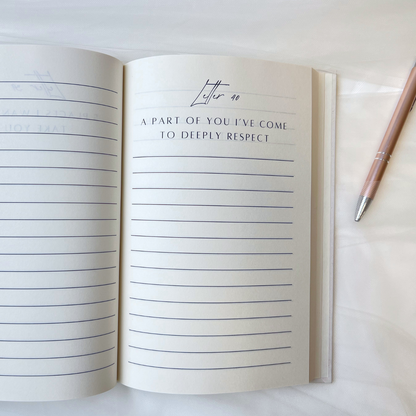 Letter 40
A PART OF YOU I'VE COME
TO DEEPLY RESPECT